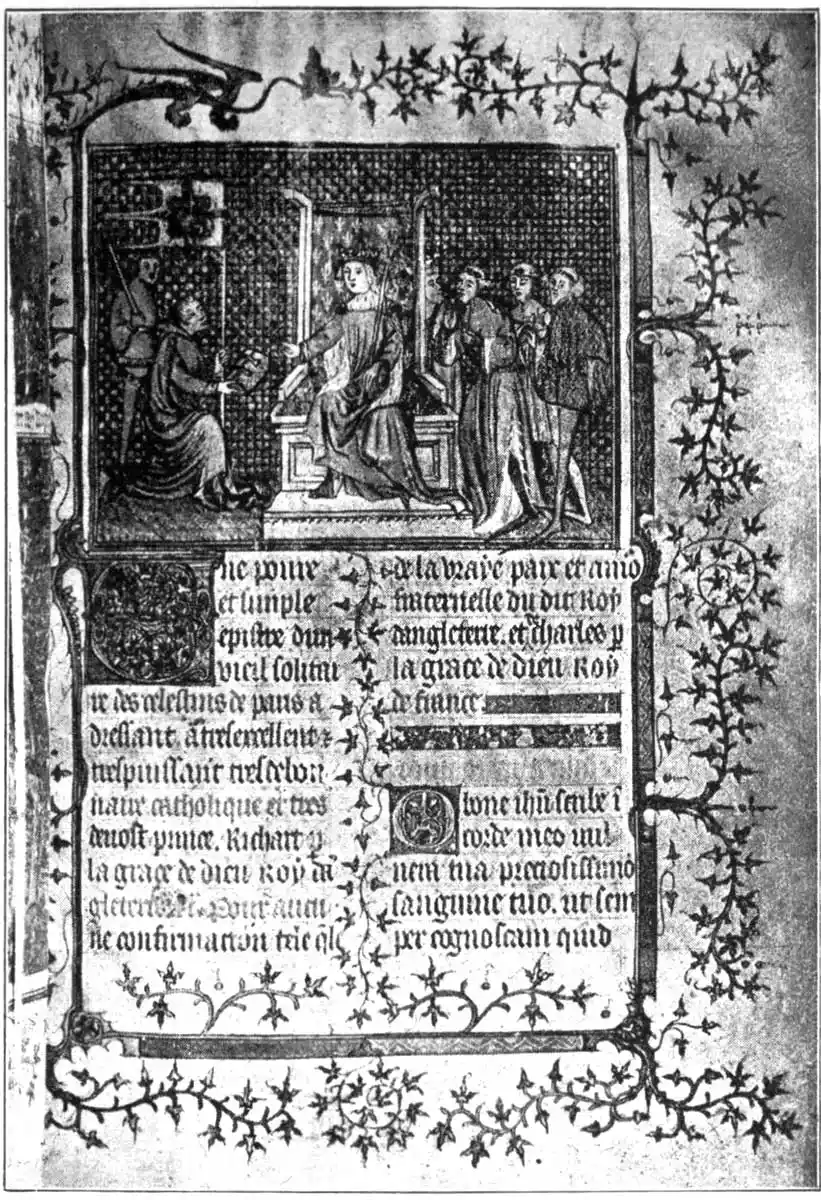 ne poure
et simple
epistre dun
vieil solitai
re des celestins de paris a
dressant. a tresexcellent &
trespuissant tresdebon
naire catholique et tres
devost prince. Richart p
la grace de dieu Roy dā
gleterre &c. Pour aucu
ne confirmacion tele q̄l
de la vraye paix et amo
fraternelle du dit Roy
dangleterre. et charles p
la grace de dieu Roy
de france
O bone ihū scribe ī
corde meo vul
nera tua preciosissimo
sanguine tuo. ut sem
per cognoscam quid